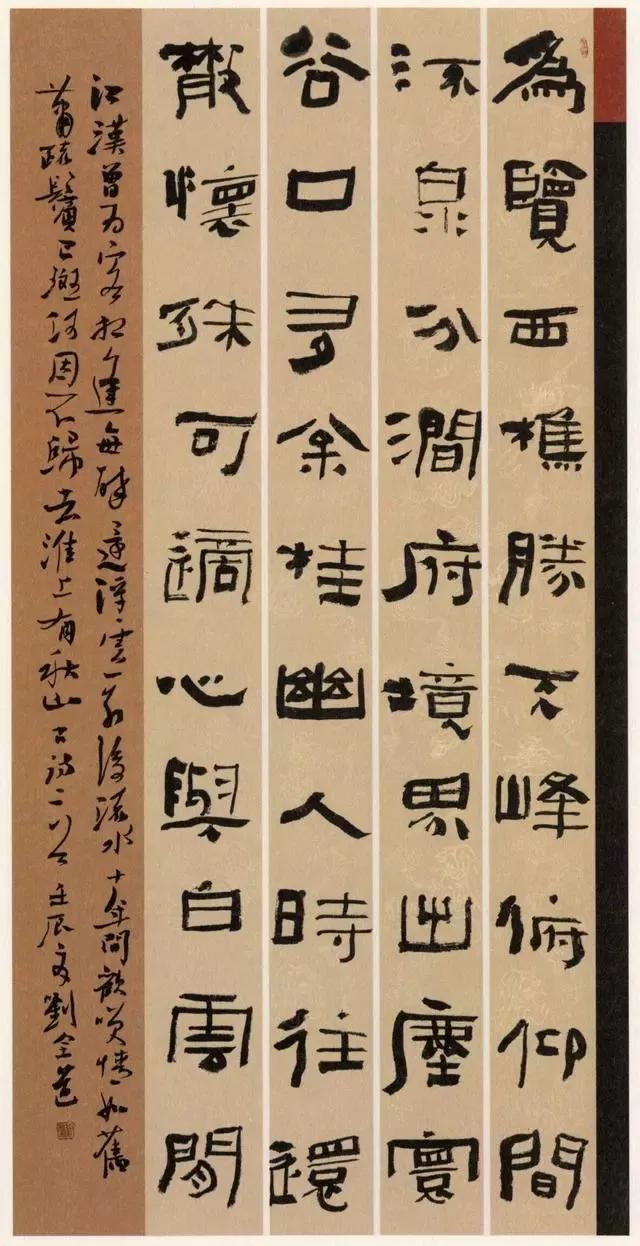 為覽西樵勝峰俯仰間
流泉分澗府境界出塵寰
谷口多余桂幽人時往還
散懷殊可適心與白雲閒
江漢曾為客相逢每醉還浮雲一別後流水十年間歡笑情如舊
蕭疏鬢已斑何因不歸去淮上有秋山古詩二首壬辰夏劉全